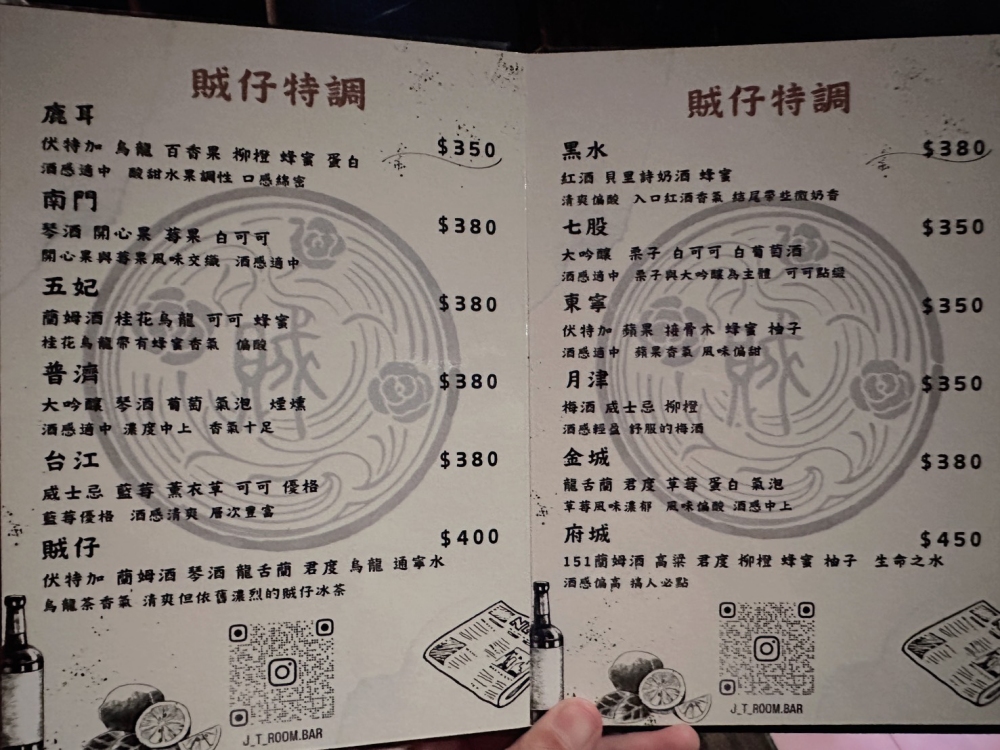 賊仔特調
鹿耳
伏特加 烏龍 百香果 柳橙 蜂蜜 蛋白 $350
酒感適中 酸甜水果調性 口感綿密
南門
琴酒 開心果 莓果 白可可 $380
開心果與莓果風味交織 酒感適中
五妃
蘭姆酒 桂花烏龍 可可 蜂蜜 $380
桂花烏龍帶有蜂蜜香氣 偏酸
普濟 $380
大吟釀 琴酒 葡萄 氣泡 煙燻
酒感適中 濃度中上 香氣十足
台江 $380
威士忌 藍莓 薰衣草 可可 優格
藍莓優格 酒感清爽 層次豐富
賊仔 $400
伏特加 蘭姆酒 琴酒 龍舌蘭 君度 烏龍 通寧水
烏龍茶香氣 清爽但依舊濃烈的賊仔冰茶
J_T_ROOM.BAR
賊仔特調
黑水 $380
紅酒 貝里詩奶酒 蜂蜜
清爽偏酸 入口紅酒香氣 結尾帶些微奶香
七股 $350
大吟釀 栗子 白可可 白葡萄酒
酒感適中 栗子與大吟釀為主體 可可點綴
東寧 $350
伏特加 蘋果 接骨木 蜂蜜 柚子
酒感適中 蘋果香氣 風味偏甜
月津 $350
梅酒 威士忌 柳橙
酒感輕盈 舒服的梅酒
金城 $380
龍舌蘭 君度 草莓 蛋白 氣泡
草莓風味濃郁 風味偏酸 酒感中上
府城 $450
151蘭姆酒 高粱 君度 柳橙 蜂蜜 柚子 生命之水
酒感偏高 搞人必點
J_T_ROOM.BAR
賊
賊